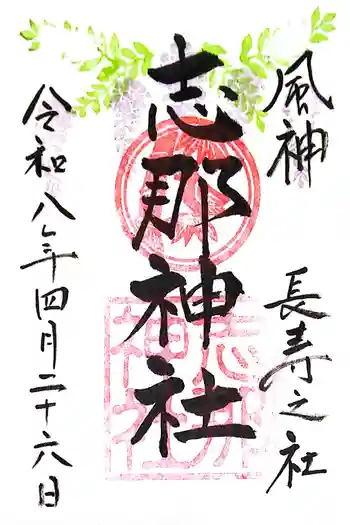 風神
長寿之社
志那神社
令和八年四月二十六日
志那
神社